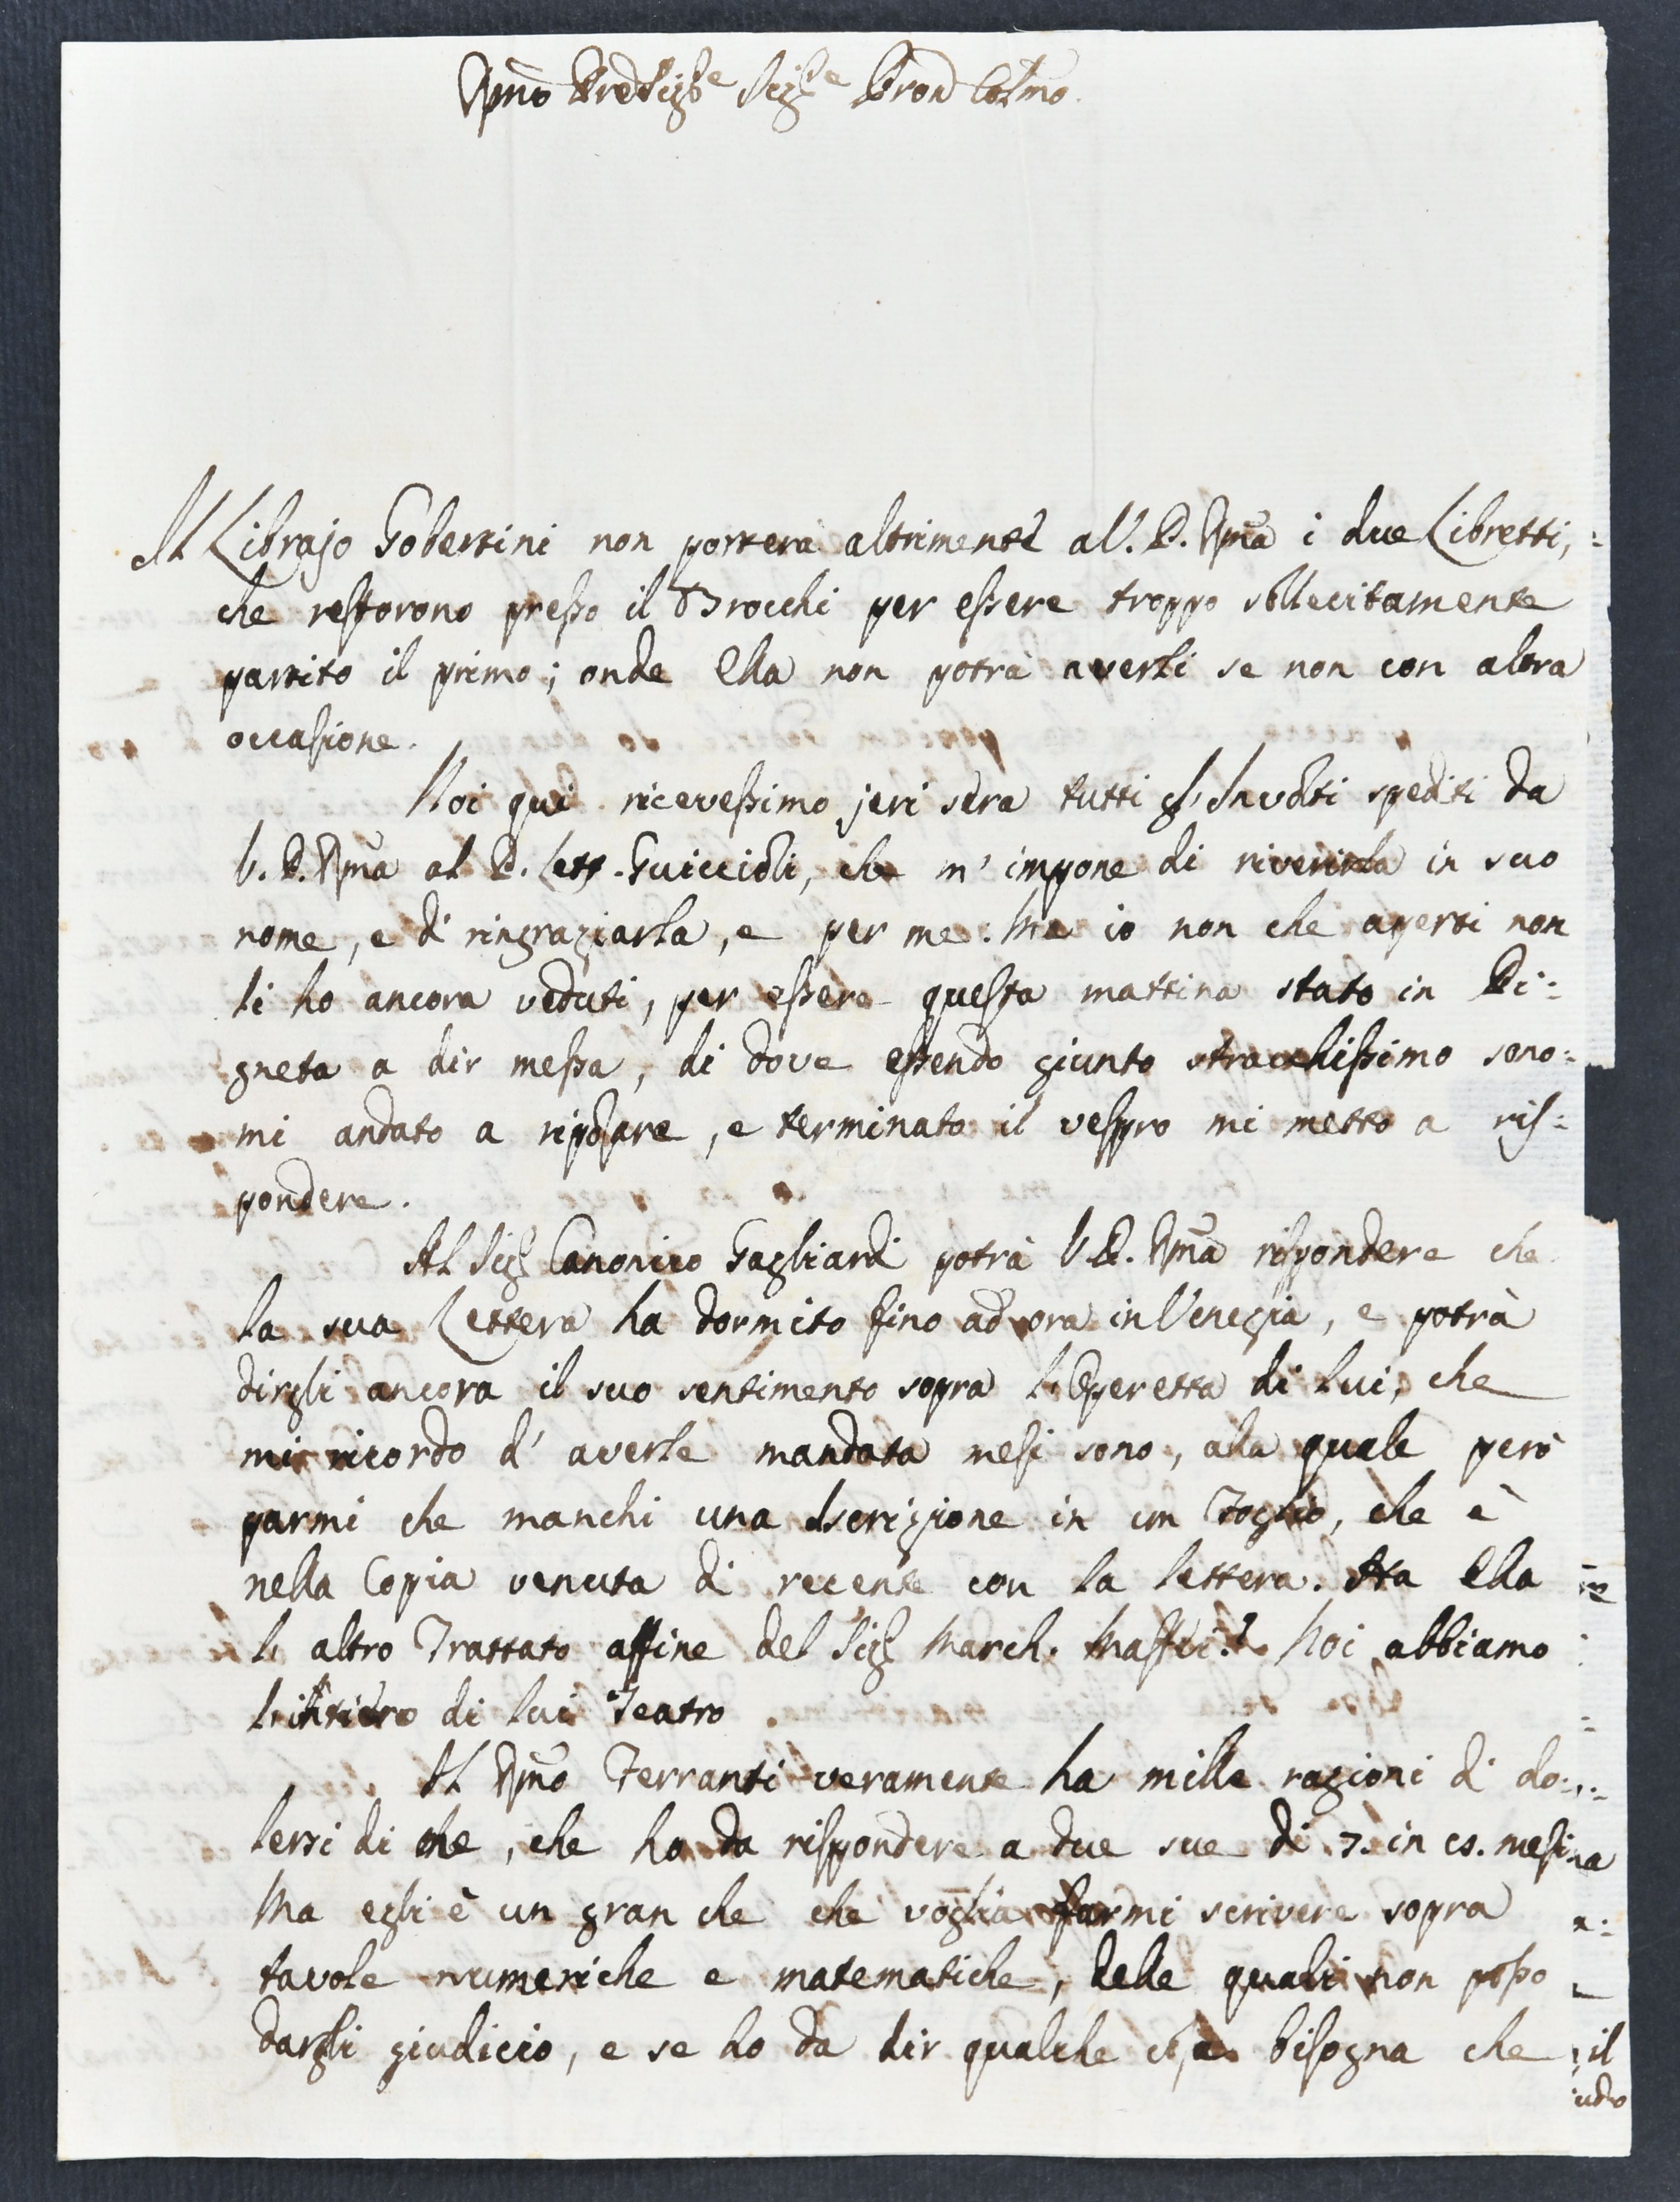 Rmo Pre Sigre Sigre Pron Colmo.
Il Librajo Gobertini non porterà altrimenti a V. P. Rma i due Libretti,
che restorono presso il Brocchi per essere troppo sollecitamente
partito il primo; onde Ella non potrà averli se non con altra
occasione.
Noi qui ricevessimo jeri sera tutti gl'Involti spediti da
V. P. Rma al P. Lett. Guiccioli, che m'impone di riverirla in suo
nome, e di ringraziarla, e per me. Ma io non che aperti non
li ho ancora veduti, per essere questa mattina stato in Pi:
gneta a dir messa, di dove essendo giunto stracchissimo sono:
mi andato a riposare, e terminato il vespro mi metto a ris:
pondere.
Al Sigr Canonico Gagliardi potrà V. P. Rma rispondere che
la sua Lettera ha dormito fino ad ora in Venezia, e potrà
dirgli ancora il suo sentimento sopra l'Operetta di lui, che
mi ricordo d'averle mandata mesi sono, alla quale però
parmi che manchi una Iscrizione in un Foglio, che è
nella Copia venuta di recente con la lettera. Ha Ella
l'altro Trattato affine del Sigr March. Maffei? Noi abbiamo
l'intiero di lui Teatro
Il Rmo Ferranti veramente ha mille ragioni di do:
lersi di me, che ho da rispondere a due sue di 7. in cs. mesi
Ma egli è un gran che che voglia farmi scrivere sopra
tavole numeriche e matematiche, delle quali non posso
dargli giudicio, e se ho da dir qualche cosa bisogna che
il